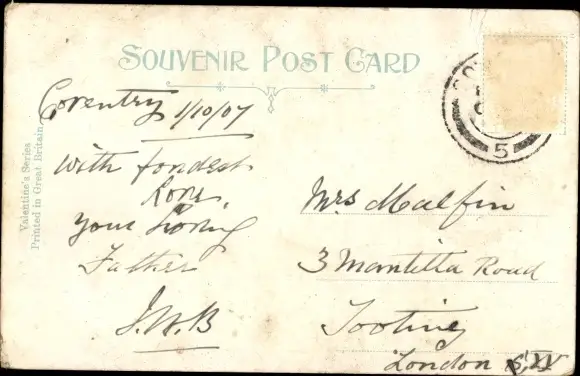 SOUVENIR POST CARD
Coventry 1/10/07
with fondest
Love,
your Loving
Father
J.W.B
Mrs Malfin
3 Mantilla Road
Tooting
London S.W
Valentine's Series
Printed in Great Britain
5